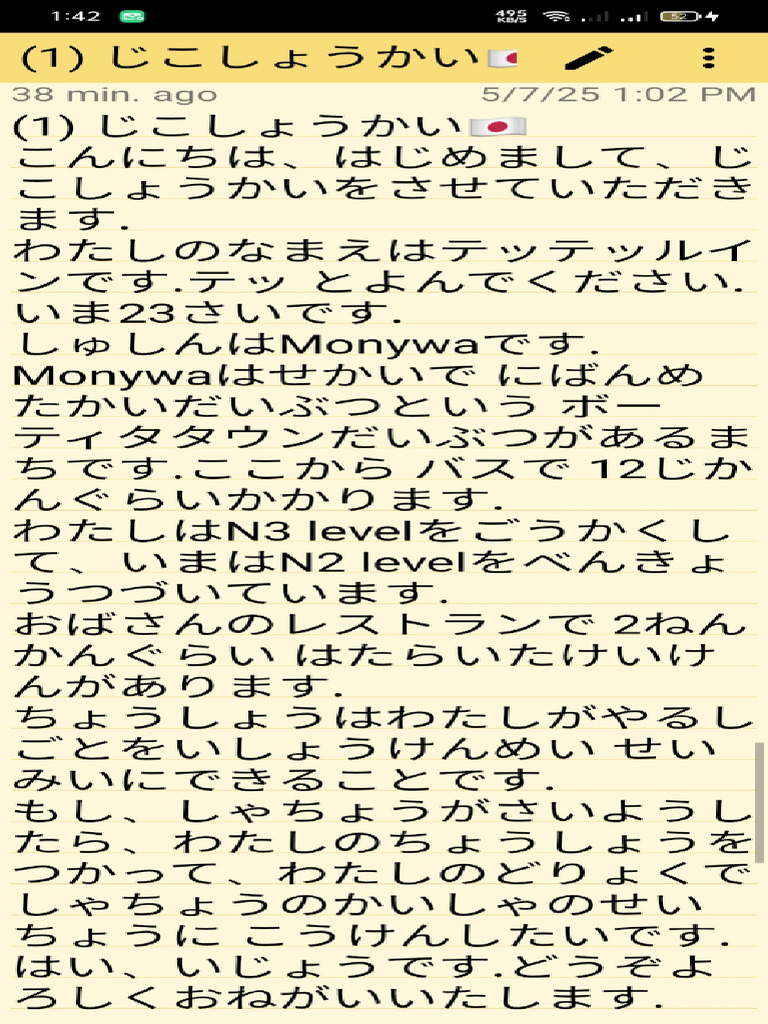 1:42
495 KB/S
52
(1) じこしょうかい🇯🇵
38 min. ago 5/7/25 1:02 PM
(1) じこしょうかい🇯🇵
こんにちは、はじめまして、じ
こしょうかいをさせていただき
ます.
わたしのなまえはテッテッルイ
ンです.テッ とよんでください.
いま23さいです.
しゅしんはMonywaです.
Monywaはせかいで にばんめ
たかいだいぶつという ボー
ティタタウンだいぶつがあるま
ちです.ここから バスで 12じか
んぐらいかかり ます.
わたしはN3 levelをごうかくし
て、いまはN2 levelをべんきょ
うつづいています.
おばさんのレストランで 2ねん
かんぐらい はたらいたけいけ
んがあり ます.
ちょうしょうはわたしがやるし
ごとをいしょうけんめい せい
みいにできることです.
もし、しゃちょうがさいようし
たら、わたしのちょうしょうを
つかって、わたしのどりょくで
しゃちょうのかいしゃのせい
ちょうに こうけんしたいです.
はい、いじょうです.どうぞよ
ろしくおねがいいたします.